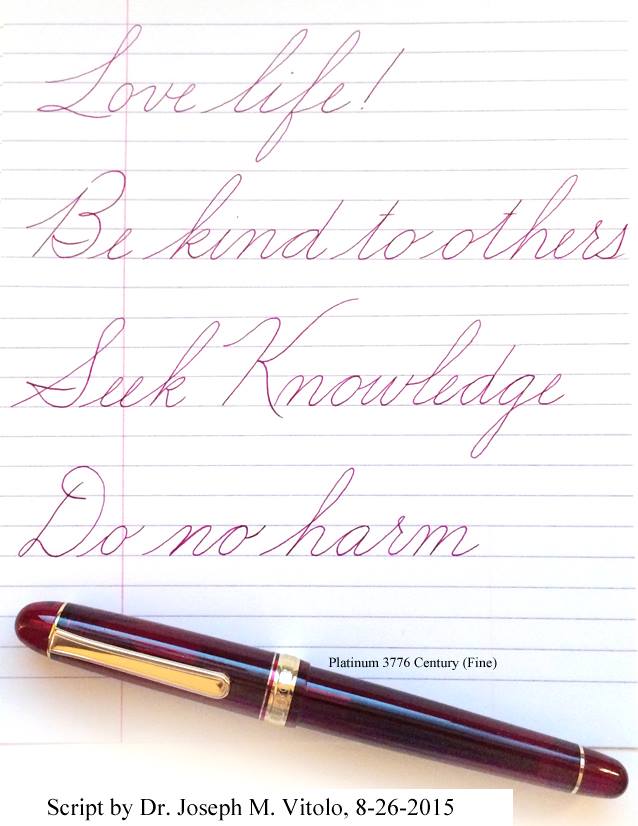 Love life!
Be kind to others
Seek Knowledge
Do no harm
Platinum 3776 Century (Fine)
Script by Dr. Joseph M. Vitolo, 8-26-2015